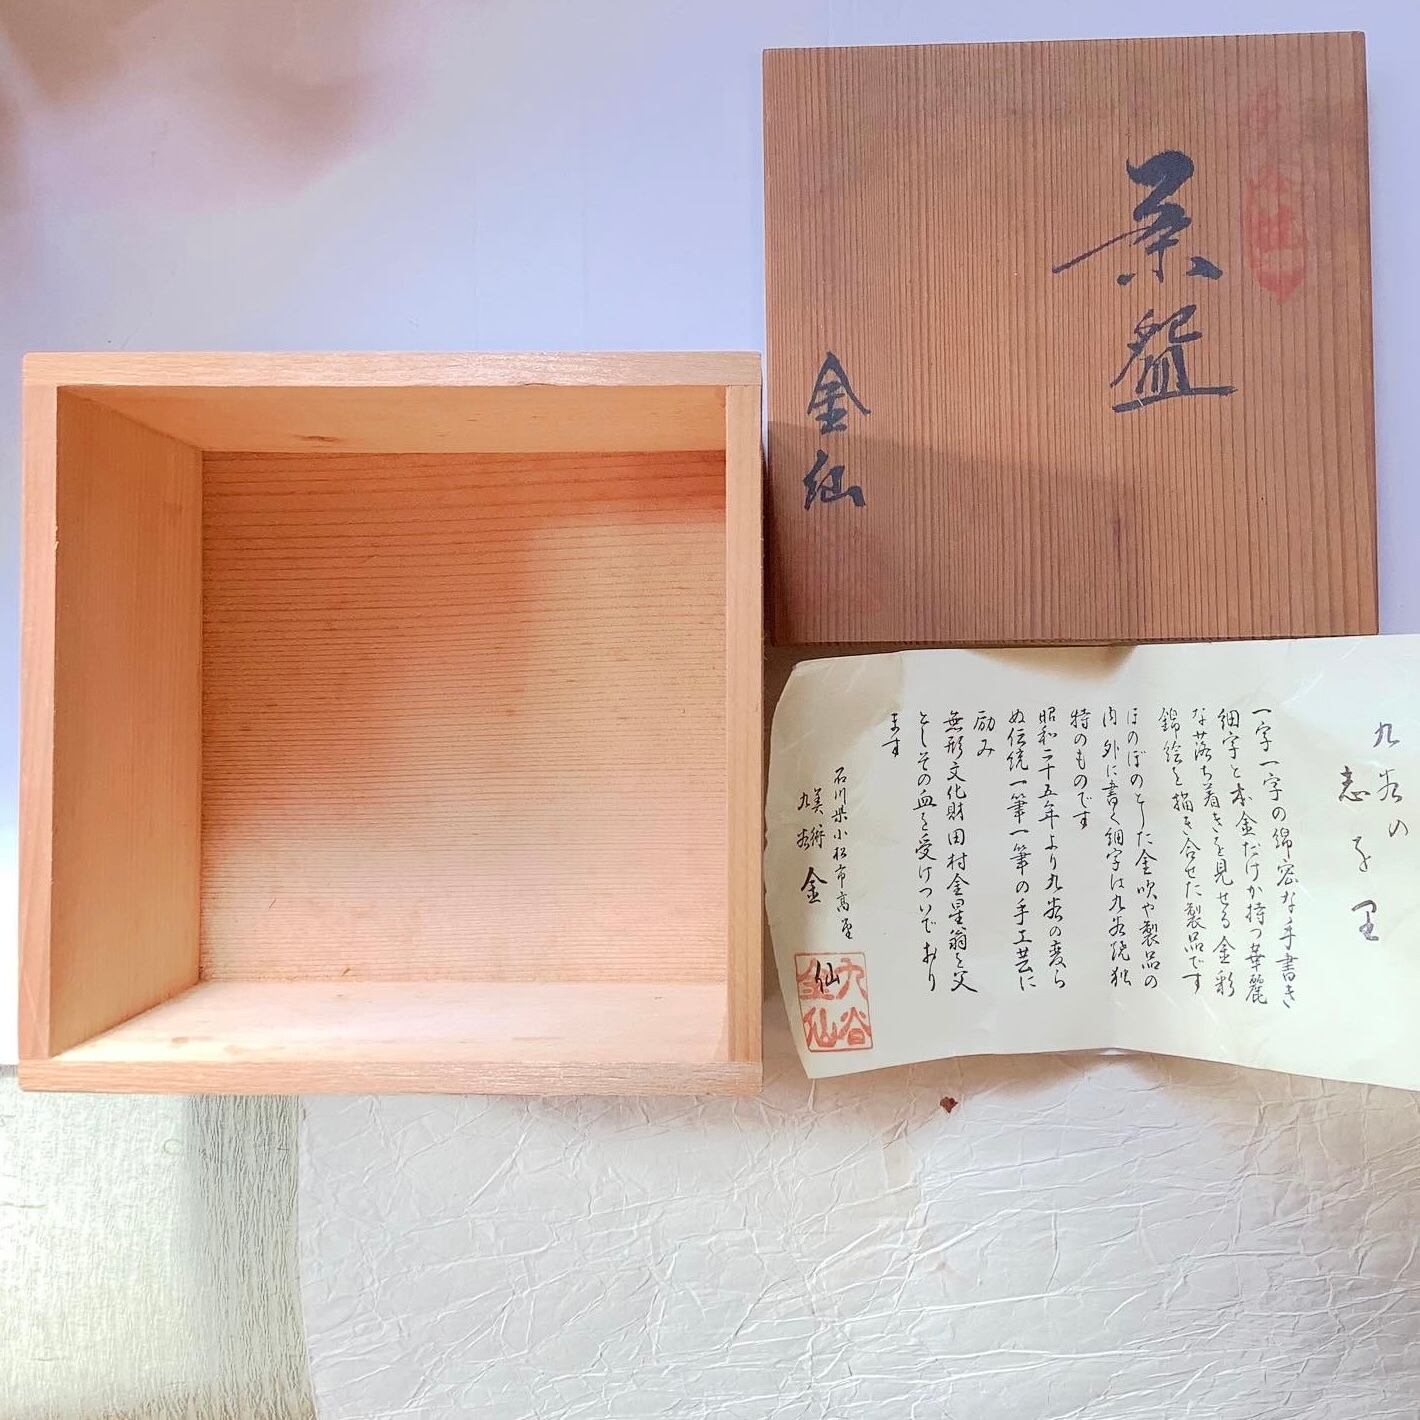 茶盌
金仙
九谷の
志を里
一字一字の綿密な手書き
細字と本金だけが持つ華麗
な落ち着きを見せる金彩
錦絵を描き合せた製品です
ほのぼのとした金吹や製品の
内外に書く細字は九谷焼独
特のものです
昭和二十五年より九谷の変ら
ぬ伝統一筆一筆の手工芸に
励み
無形文化財田村金星翁を父
としその血を受けついでおり
ます
石川県小松市高堂
美術
九谷
金仙
九谷
金仙